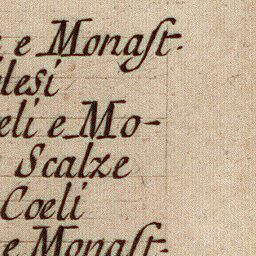 e Monaſt.
lesi
eli e Mo-
Scalze
Coeli
e Monaſt.